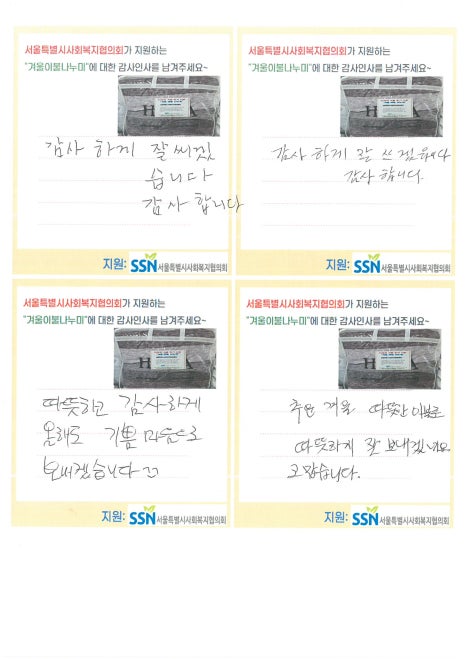 서울특별시사회복지협의회가 지원하는
"겨울이불나누미"에 대한 감사인사를 남겨주세요~
감사 하게 잘 씨겠
습니다
감사 합니다
지원: SSN 서울특별시사회복지협의회
서울특별시사회복지협의회가 지원하는
"겨울이불나누미"에 대한 감사인사를 남겨주세요~
감사 하게 잘 쓰겠
감사 합니다.
지원: SSN 서울특별시사회복지협의회
서울특별시사회복지협의회가 지원하는
"겨울이불나누미"에 대한 감사인사를 남겨주세요~
따뜻하고 감사하게
올해도 기쁨 마음으로
보내겠습니다
지원: SSN 서울특별시사회복지협의회
서울특별시사회복지협의회가 지원하는
"겨울이불나누미"에 대한 감사인사를 남겨주세요~
추운 겨울 따뜻한 이불로
따뜻하게 잘 보내겠네요.
고맙습니다.
지원: SSN 서울특별시사회복지협의회